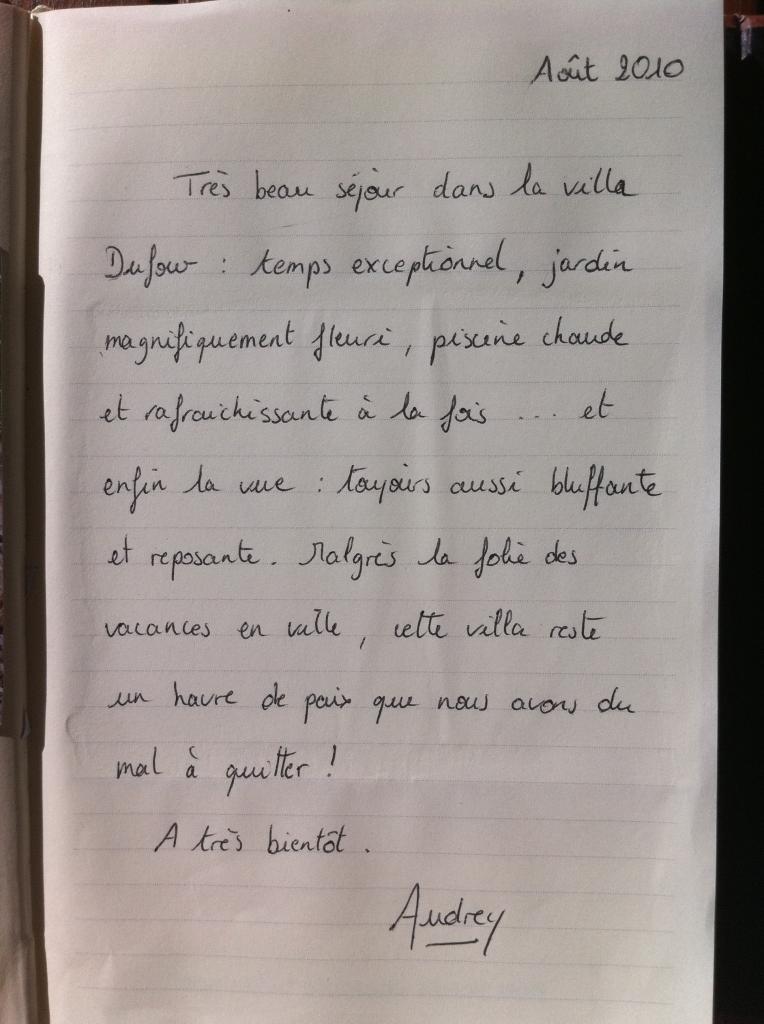 Août 2010
Très beau séjour dans la villa
Dufour : temps exceptionnel, jardin
magnifiquement fleuri, piscine chaude
et rafraichissante à la fois ... et
enfin la vue : toujours aussi bluffante
et reposante. Malgrès la folie des
vacances en ville, cette villa reste
un havre de paix que nous avons du
mal à quitter !
A très bientôt.
Audrey